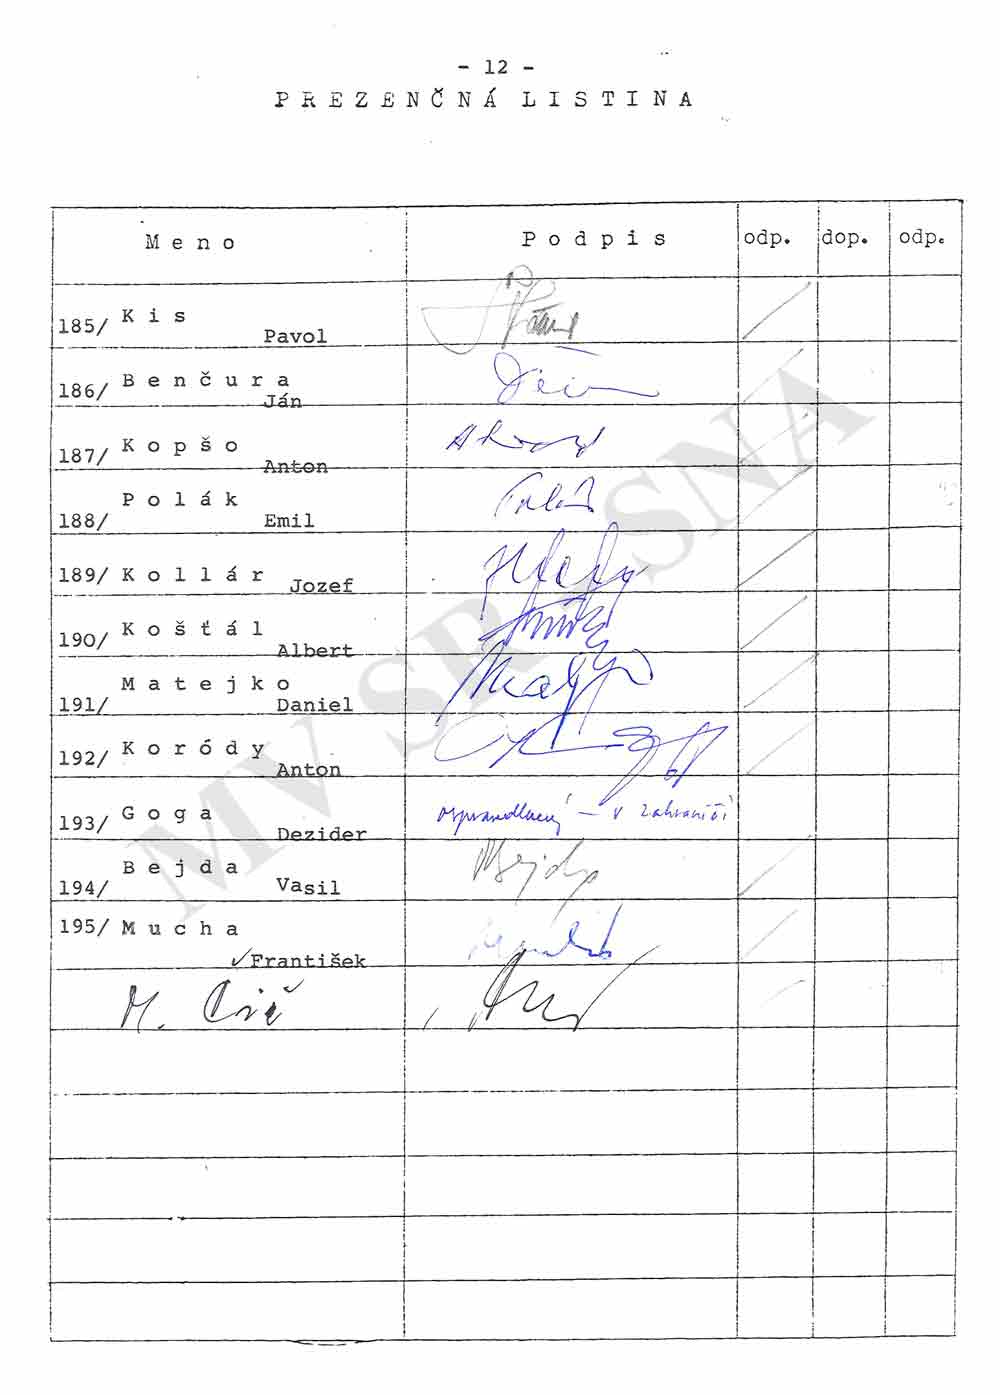 - 12 -
PREZENČNÁ LISTINA
Meno Podpis odp. dop. odp.
185/ Kis
Pavol
186/ Benčura
Ján
187/ Kopšo
Anton
Polák
188/ Emil
189/ Kollár
Jozef
190/ Košťál
Albert
Matejko
191/ Daniel
192/ Koródy
Anton
193/ Goga ospravedlnený – v zahraničí
Dezider
Bejda
194/ Vasil
195/ Mucha
✓František
M.
MV SR - SNA